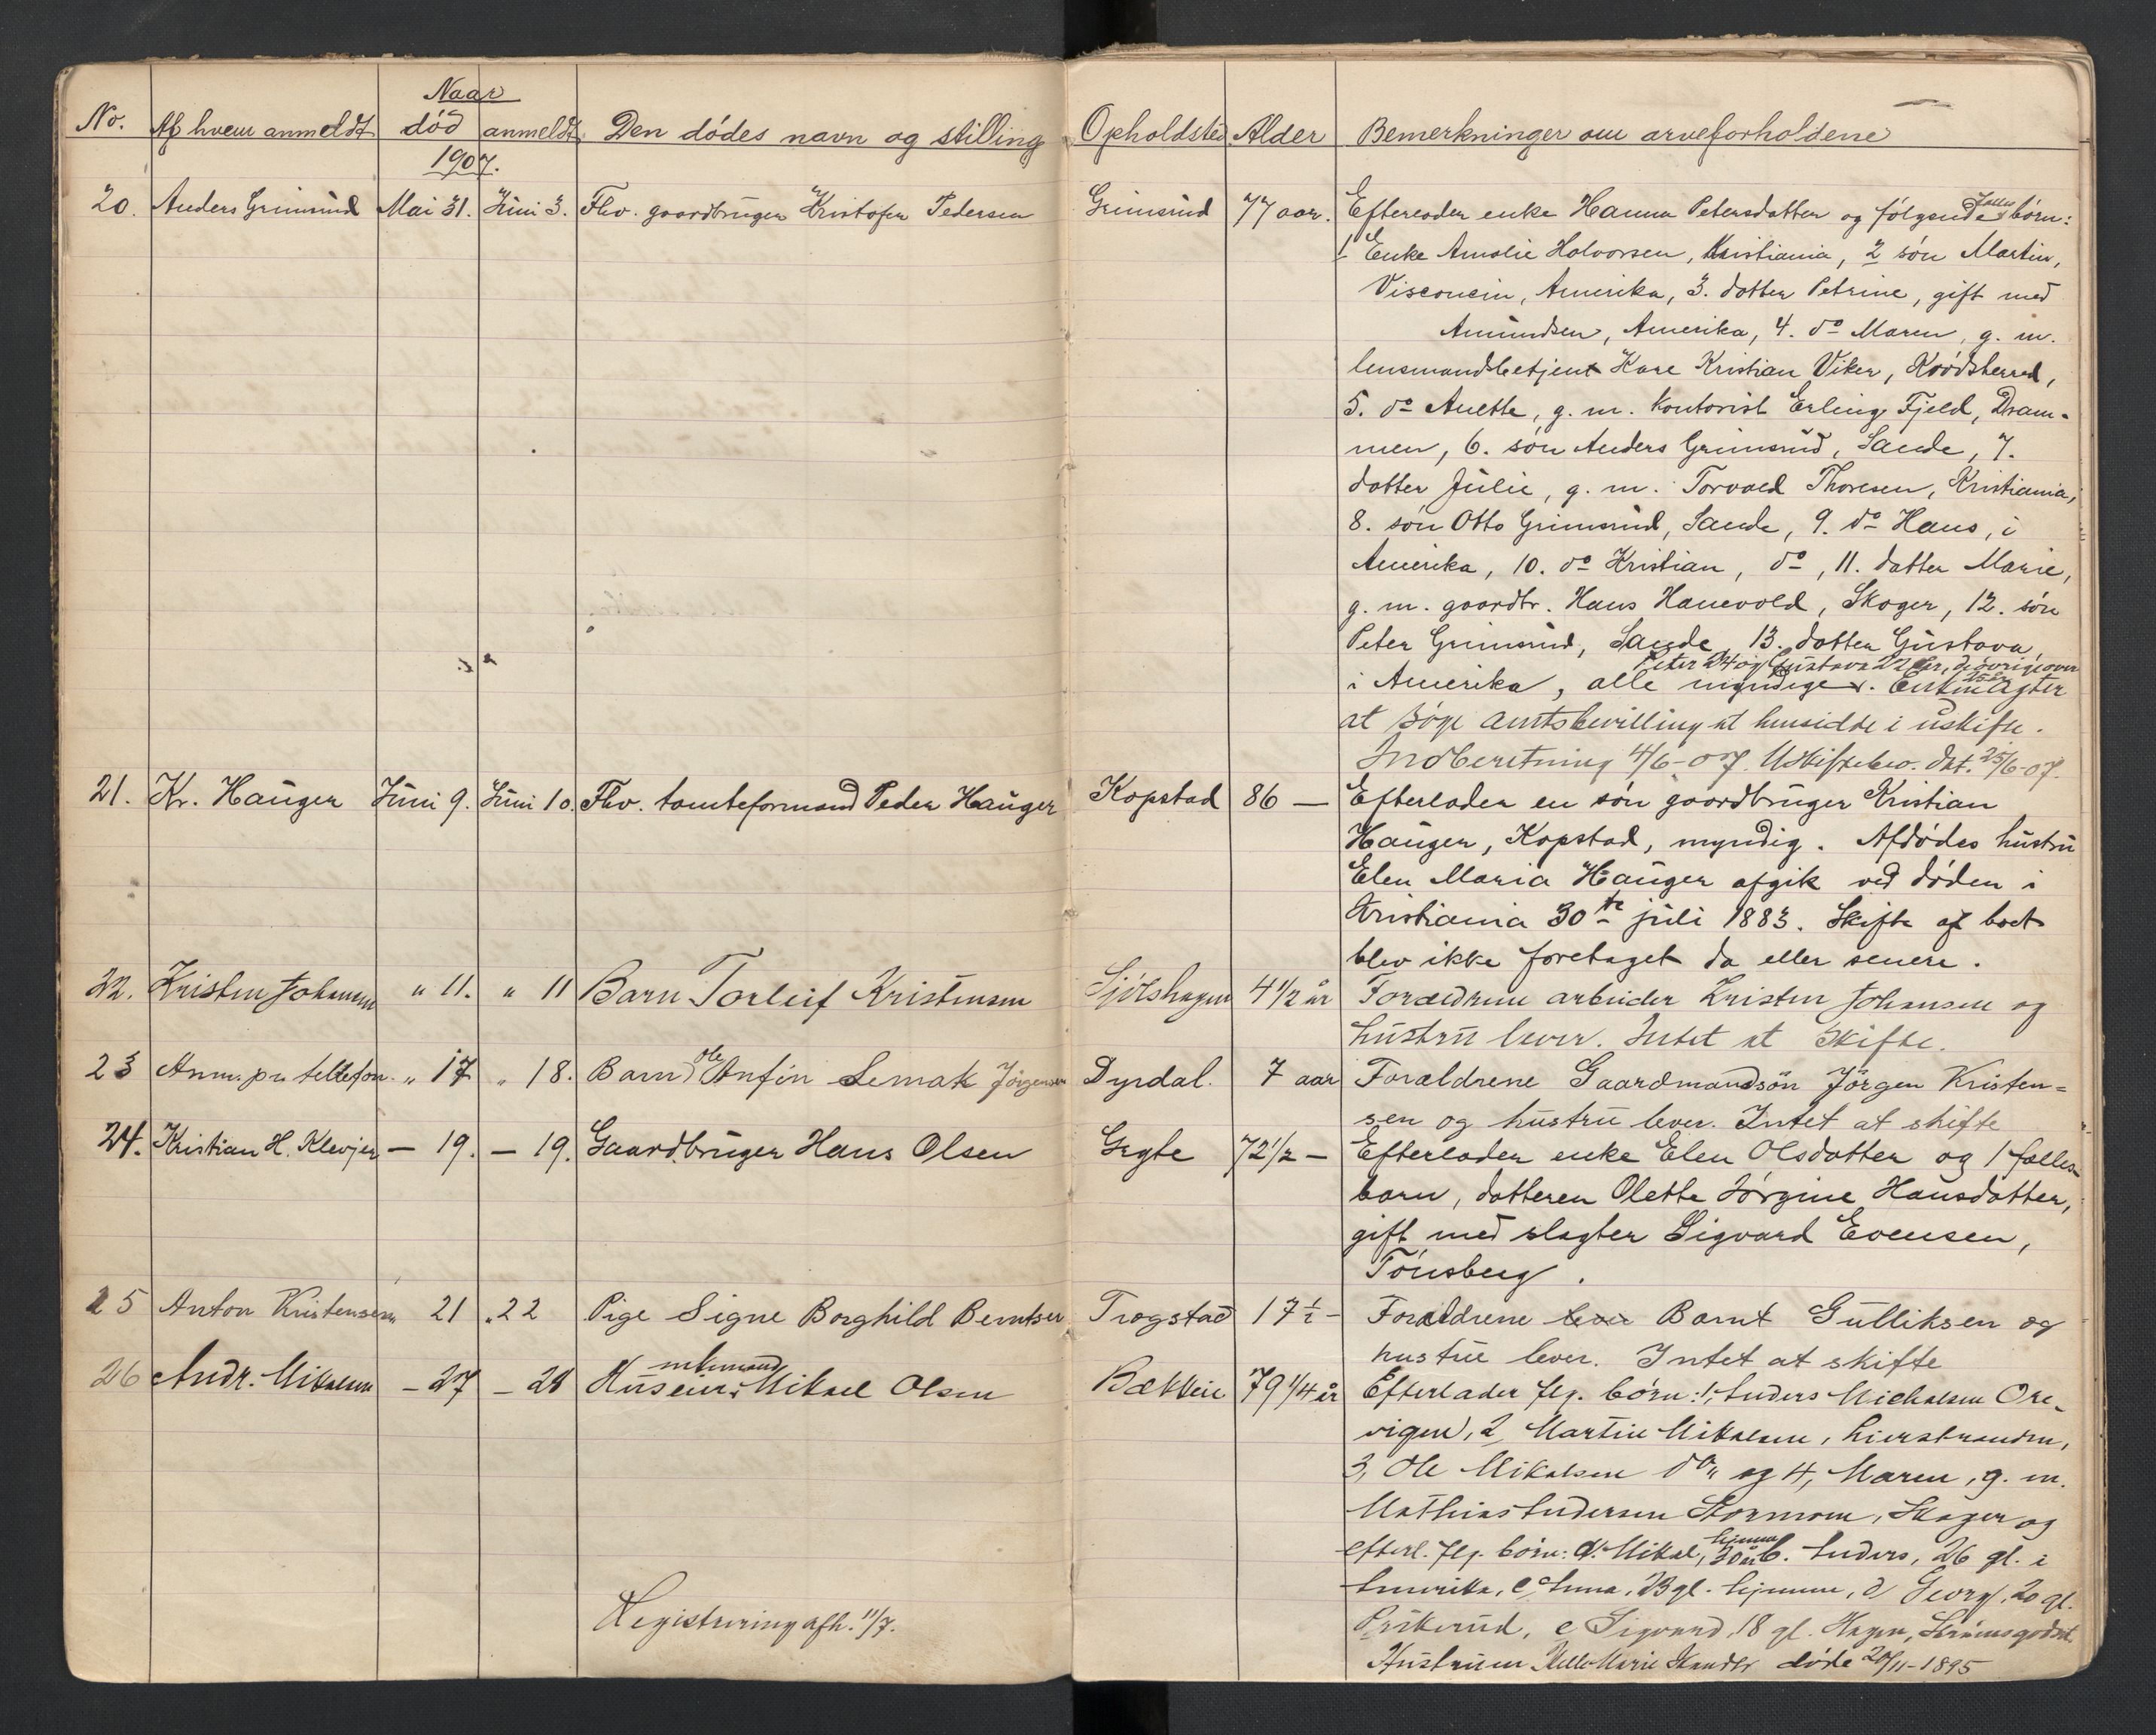 Naar
No. Af hvem anmeldt død anmeldt Den dødes navn og stilling Opholdsted Alder Bemerkninger om arveforholdene
1907.
20. Anders Grimsrud Mai 31. Juni 3. Fhv. gaardbruger Kristofer Pedersen Grimsrud 77 aar. Efterlader enke Hanna Petersdatter og følgende fælles børn:
1 Enke Amalie Halvorsen, Kristiania, 2 søn Martin,
Visconsin, Amerika, 3. datter Petrine, gift med
Amundsen, Amerika, 4. do Maren, g. m.
lensmandsbetjent Kristian Viker, Krødsherred,
5. do Anette, g. m. kontorist Erling Fjeld, Dram-
men, 6. søn Anders Grimsrud, Sande, 7.
datter Julie, g. m. Torvald Thoresen, Kristiania,
8. søn Otto Grimsrud, Sande, 9. do Hans, i
Amerika, 10. do Kristian, do, 11. datter Marie,
g. m. gaardbr. Hans Hanevold, Skoger, 12. søn
Peter Grimsrud, Sande, 13. datter Gustava,
Peter 24 og Gustava 22 år, de øvrige over 25 år
i Amerika, alle myndige. Enken agter
at søge amtsbevilling at hensidde i uskifte.
Indberetning 4/6-07. Uskiftebev. dat. 25/6-07.
21. Kr. Hauger Juni 9. Juni 10. Fhv. tomteformand Peder Hauger Kopstad 86 — Efterlader en søn gaardbruger Kristian
Hauger, Kopstad, myndig. Afdødes hustru
Elen Maria Hauger afgik ved døden i
Kristiania 30te juli 1883. Skifte af boet
blev ikke foretaget da eller senere.
22. Kristen Johansen " 11. " 11 Barn Torleif Kristensen Sjølshagen 4 1/2 år Forældrene arbeider Kristen Johansen og
hustru lever. Intet at skifte.
23 Anm. pr tellefon. " 17 " 18. Barn Ole Anfin Semak Jörgensen Dyrdal. 7 aar Forældrene Gaardmandsön Jörgen Kristen-
sen og hustru lever. Intet at skifte
24. Kristian H. Klevjer — 19. — 19. Gaardbruger Hans Olsen Gregte 72 1/2 — Efterlader enke Elen Olsdatter og 1 fælles-
barn, datteren Olette Jørgine Hansdatter,
gift med slagter Sigvard Evensen,
Tønsberg.
25 Anton Kristensen 21 " 22 Pige Signe Borghild Berntsen Trogstad 17 1/2 - Forældrene lever Barnt Gulliksen og
hustru lever. Intet at skifte
26 Andr. Mikalsen - 27 - 28 Huseier enkemand Mikael Olsen Bækken 79 1/4 år Efterlader flg. børn: 1, Anders Michalsen Ore-
vigen, 2 Martin Mikalsen, Lierstranden,
3, Ole Mikalsen do " og 4, Maren, g. m.
Mathias Andersen Skoger og
efterl. flg. børn: a. Mikal, 30 år hjemme b. Anders, 26 gl. i
Amerika, c Anna, 23 gl. hjemme, d Georg, 20 gl.
e Sigvard, 18 gl. Hagen, Strømsgodset
Hustruen Marie døde 20/11-1895
Registrering afh. 11/7.